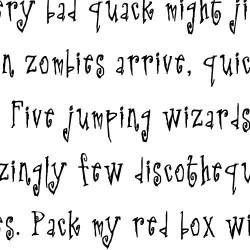 ery bad quack might ji
n zombies arrive, quic
Five jumping wizards
zingly few discothequ
es. Pack my red box wi